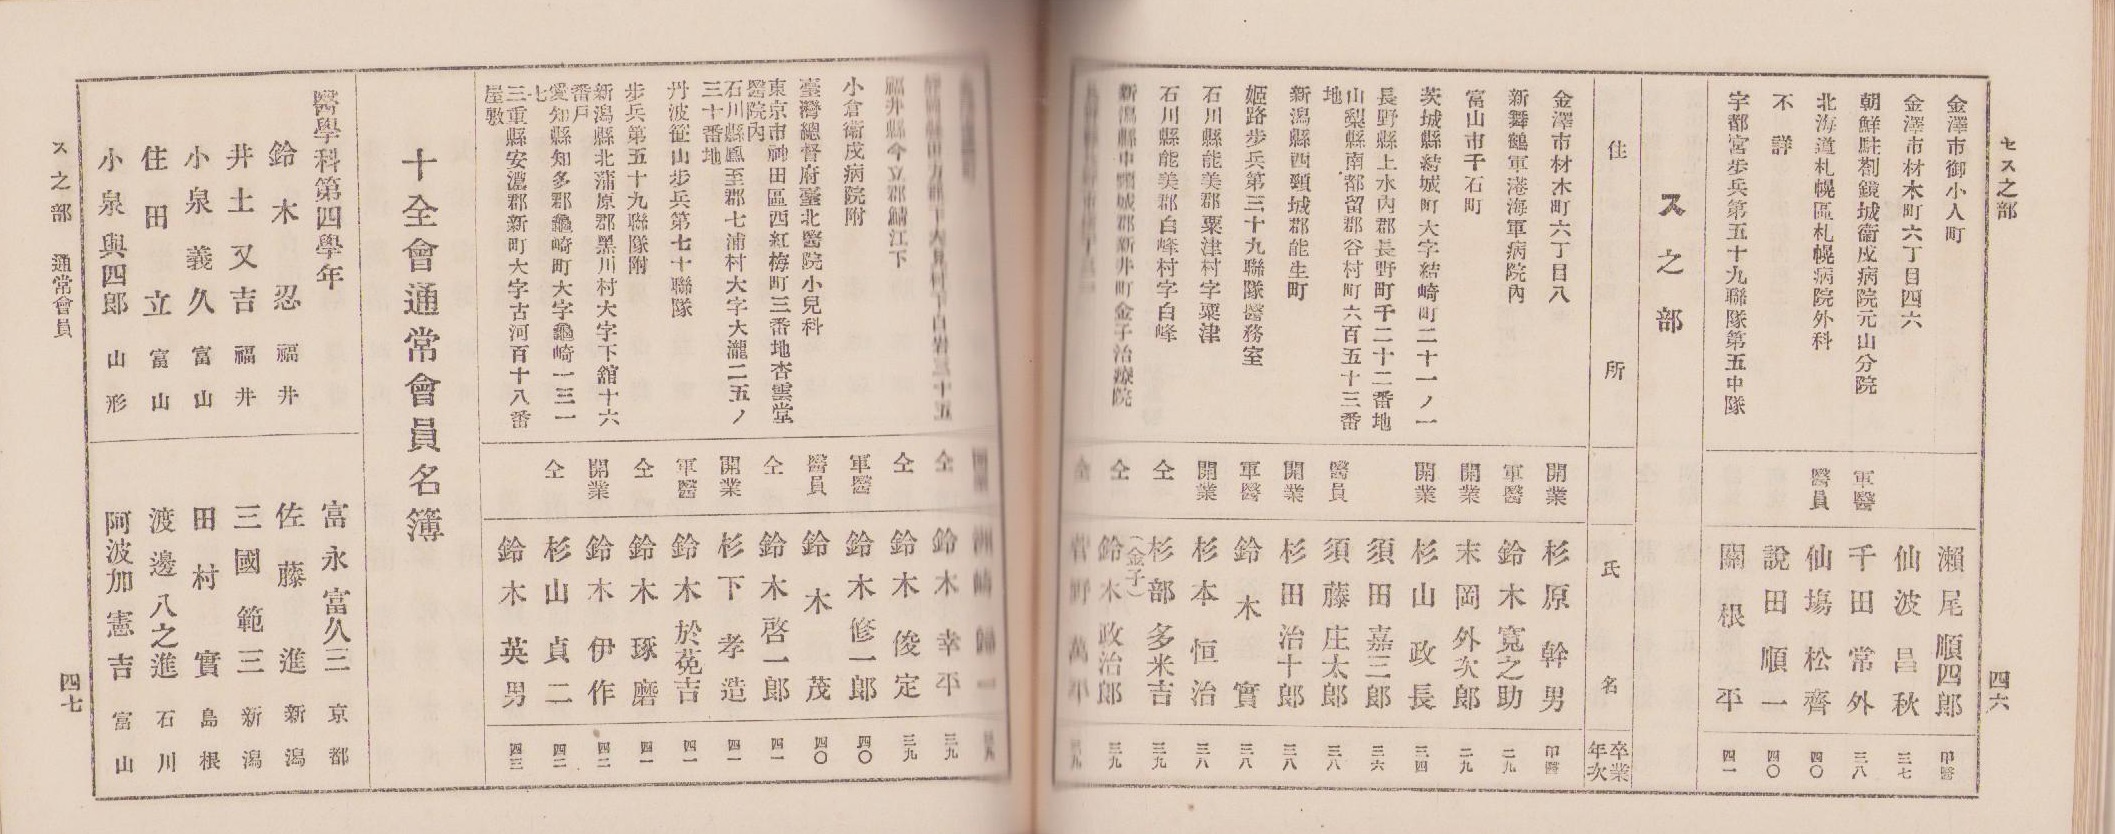 セス之部
四六
金澤市御小人町 瀨尾順四郎 甲醫
金澤市材木町六丁目四六 仙波昌秋 三七
朝鮮駐劄鏡城衞戍病院元山分院 軍醫 千田常外 三八
北海道札幌區札幌病院外科 醫員 仙塲松齊 四〇
不詳 說田順一 四〇
宇都宮歩兵第五十九聯隊第五中隊 關根平 四一
ス之部
住所 氏名 卒業年次
金澤市材木町六丁目八 開業 杉原幹男 甲醫
新舞鶴軍港海軍病院內 軍醫 鈴木寬之助 二九
富山市千石町 開業 末岡外次郎 二九
茨城縣結城町大字結崎町二十一ノ一 開業 杉山政長 三四
長野縣上水內郡長野町千二十二番地 須田嘉三郎 三六
山梨縣南都留郡谷村町六百五十三番地 醫員 須藤庄太郎 三八
新潟縣西頸城郡能生町 開業 杉田治十郎 三八
姬路歩兵第三十九聯隊醫務室 軍醫 鈴木實 三八
石川縣能美郡粟津村字粟津 開業 杉本恒治 三八
石川縣能美郡白峰村字白峰 仝 杉部多米吉 三九
新潟縣中頸城郡新井町金子治療院 仝 (金子)鈴木政治郎 三九
仝 菅野萬平
洲崎歸一
仝 鈴木幸平 三九
福井縣今立郡鯖江下 仝 鈴木俊定 三九
小倉衞戍病院附 軍醫 鈴木修一郎 四〇
臺灣總督府臺北醫院小兒科 醫員 鈴木茂 四〇
東京市神田區西紅梅町三番地杏雲堂醫院內 仝 鈴木啓一郎 四一
石川縣鳳至郡七浦村大字大瀧二五ノ三十番地 開業 杉下孝造 四一
丹波笹山歩兵第七十聯隊 軍醫 鈴木於菟吉 四一
歩兵第五十九聯隊附 仝 鈴木琢磨 四一
新潟縣北蒲原郡黑川村大字下舘十六番戶 開業 鈴木伊作 四二
愛知縣知多郡龜崎町大字龜崎一三一七 仝 杉山貞二 四二
三重縣安濃郡新町大字古河百十八番屋敷 鈴木英男 四三
十全會通常會員名簿
醫學科第四學年
富永富久三 京都
鈴木忍 福井
佐藤進 新潟
井土又吉 福井
三國範三 新潟
小泉義久 富山
田村實 島根
住田立 富山
渡邊八之進 石川
小泉與四郎 山形
阿波加憲吉 富山
ス之部 通常會員
四七